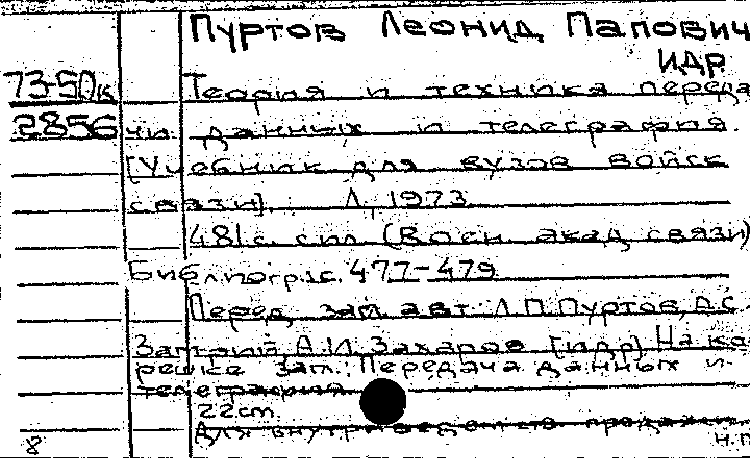 Пуртов Леонид Папович
и др
73-50к Теория и техника переда
2856 чи данных и телеграфия.
[Учебник для вузов войск
связи]. Л., 1973
481 с. с ил. (Воен. акад. связи)
Библиогр.: с. 477-479
Перед. загл. авт.: Л.П. Пуртов, А.С.
А.И. Захаров [и др.] На ко
решке загл.: Передача данных и
телеграфия
22 cm.
Для внутриведомств. продажи.
8 н.п